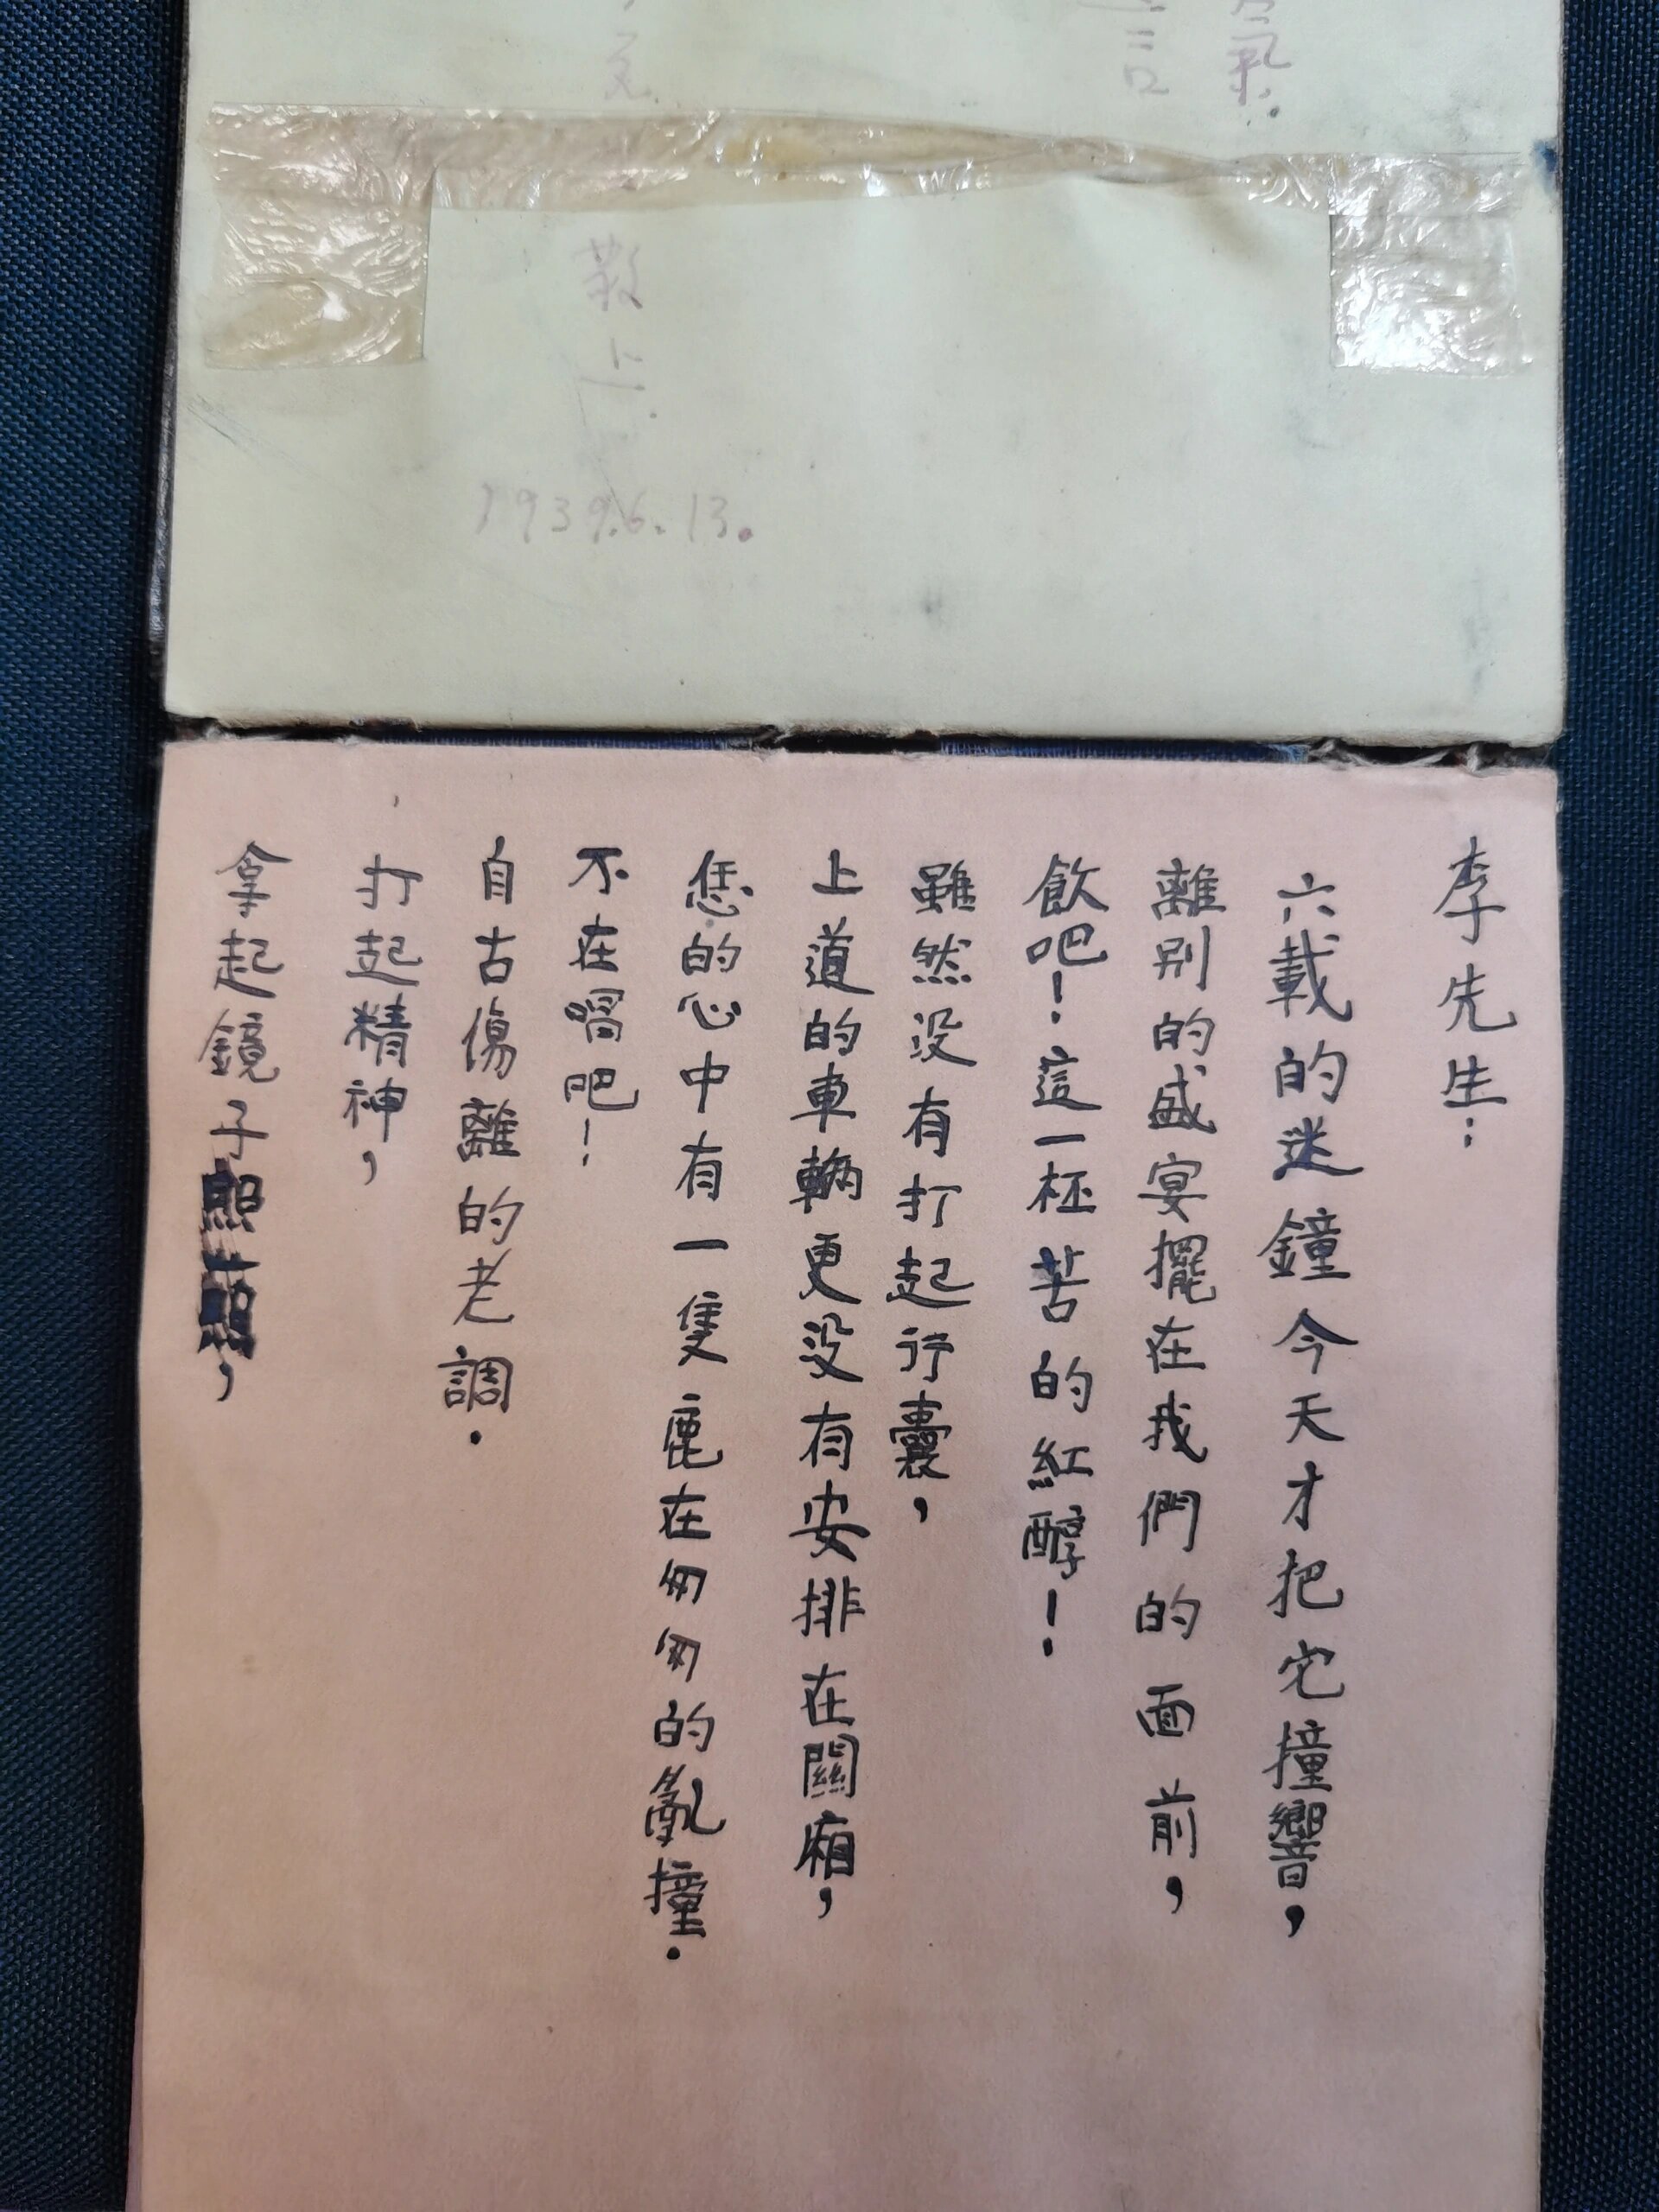 氣.
敬上.
1939.6.13.
李先生：
六載的迷鐘今天才把它撞響，
離别的盛宴擺在我們的面前，
飲吧！這一杯苦的紅醇！
雖然没有打起行囊，
上道的車輛更没有安排在關廂，
恁的心中有一隻鹿在匆匆的亂撞.
不在習吧！
自古傷離的老調.
打起精神，
拿起鏡子照一照，